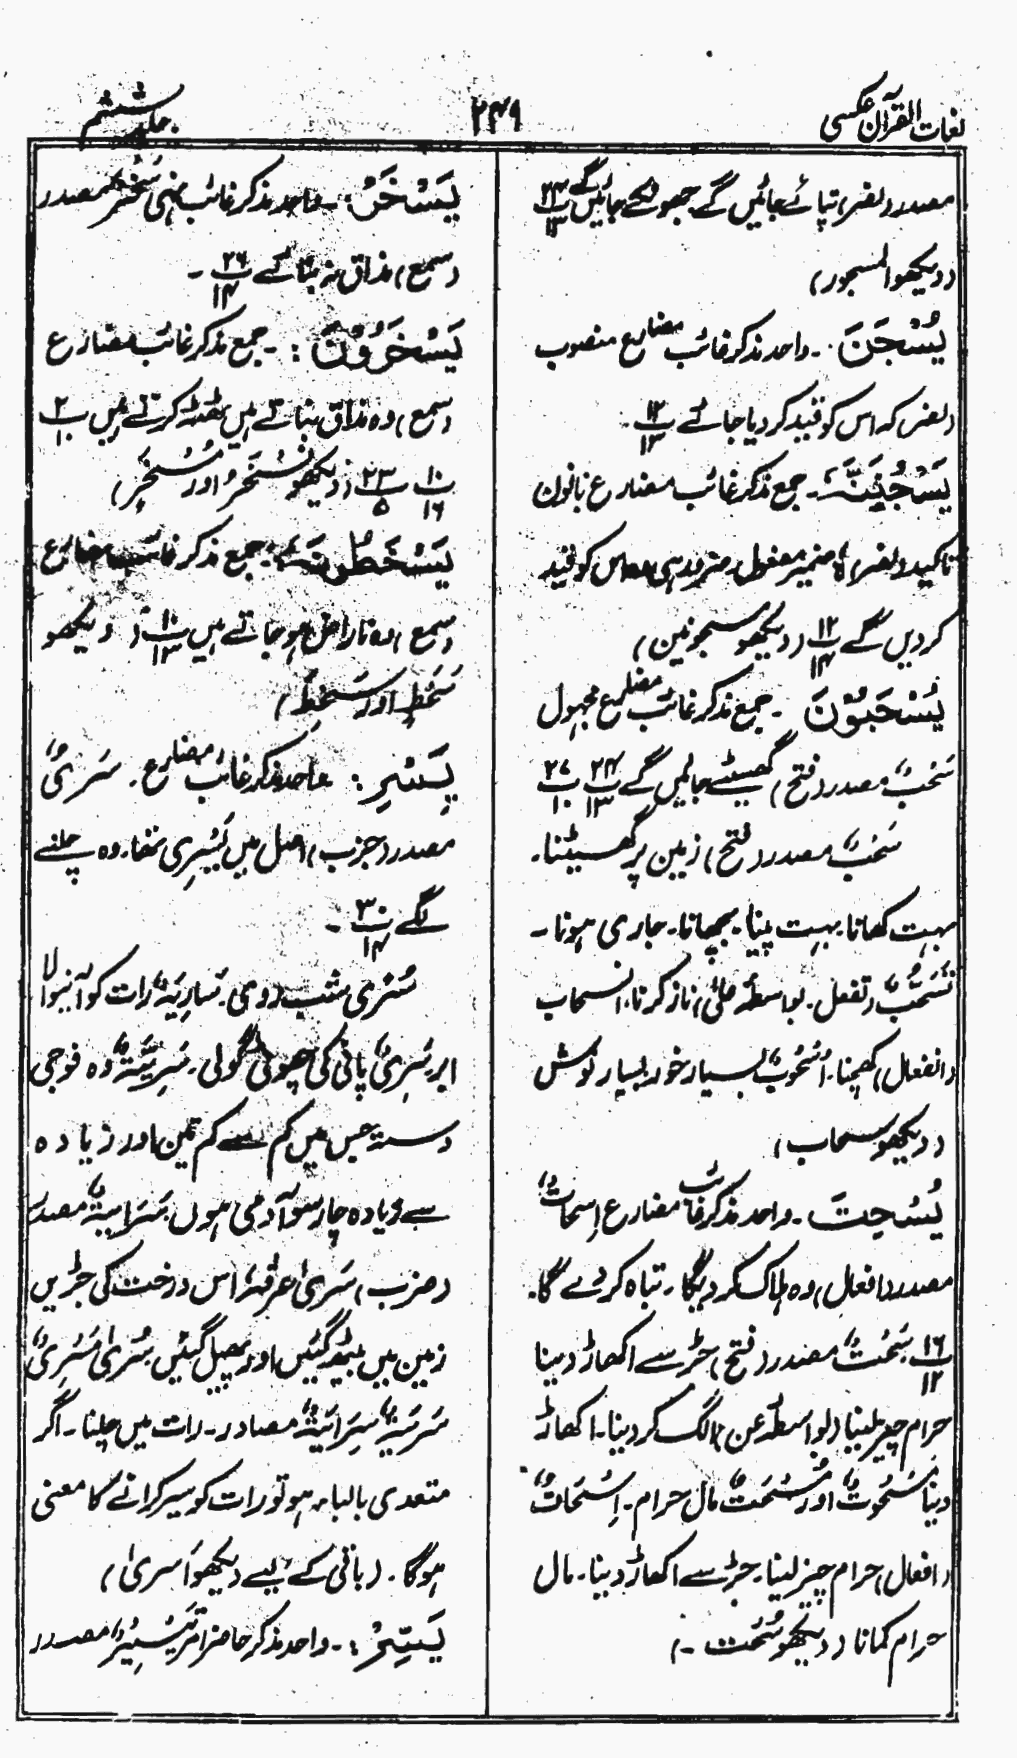 لغات القرآن عکسی
۲۴۹
جلد ششم
مصدر (نصر) تپائے جائیں گے جھونکے جائیں گے ۲۴/۱۳
(دیکھو المسجور)
یُسْجَنَ ۔ واحد مذکر غائب مضارع منصوب
(نصر) کہ اس کو قید کر دیا جائے ۱۲/۱۳
یَسْجُنَنَّہٗ ۔ جمع مذکر غائب مضارع بانون
تاکید (نصر) ہٗ ضمیر مفعول ۔ ضرور ہی وہ اس کو قید
کردیں گے ۱۲/۱۴ (دیکھو مسجونین)
یُسْحَبُوْنَ ۔ جمع مذکر غائب مضارع مجہول
سَحْبٌ مصدر (فتح) گھسیٹے جائیں گے ۲۴/۱۳ ۲۷/۱۰
سَحْبٌ مصدر (فتح) زمین پر گھسیٹنا۔
بہت کھانا بہت پینا۔ بچھانا۔ جاری ہونا ۔
تَسَحُّبٌ (تفعل۔ بواسطہ علیٰ) ناز کرنا، انسحاب
(انفعال) کھچنا۔ اُسْحُوْبٌ بسیار خور بسیار نوش
(دیکھو سحاب)
یُسْحِتَ ۔ واحد مذکر غائب مضارع اِسْحَاتٌ
مصدر (افعال) وہ ہلاک کر دیگا ۔ تباہ کر دے گا۔
۱۶/۱۲ سَحْتٌ مصدر (فتح) جڑ سے اکھاڑ دینا
حرام چیز لینا (بواسطہ عن) الگ کر دینا۔ اکھاڑ
دینا مَسْحُوْتٌ اور مُسْحَتٌ مال حرام ۔ اِسْحَاتٌ
(افعال) حرام چیز لینا۔ جڑ سے اکھاڑ دینا۔ مال
حرام کمانا (دیکھو سُحْت ۔)
یَسْخَرْ : ۔ واحد مذکر غائب نہی سُخْرٌ مصدر
(سمع) مذاق نہ بنائے ۲۶/۱۴ ۔
یَسْخَرُوْنَ : ۔ جمع مذکر غائب مضارع
(سمع) وہ مذاق بناتے ہیں ٹھٹھہ کرتے ہیں ۲/۱۰
۱۰/۱۶ ۲۳/۵ (دیکھو نَسْخَرُ اور مُسَخَّرٍ)
یَسْخَطُوْنَ : ۔ جمع مذکر غائب مضارع
(سمع) وہ ناراض ہو جاتے ہیں ۱۰/۱۳ (دیکھو
سَخَطٍ اور سَخِطَ)
یَسْرِ : واحد مذکر غائب مضارع ۔ سَرْیٌ
مصدر (ضرب) اصل میں یَسْرِی تھا۔ وہ چلنے
لگے ۳۰/۱۴ ۔
سُرٰی شب روی۔ سَارِیَۃٌ رات کو آنیوالا
ابر سَرِیٌّ پانی کی چھوٹی گولی ۔ سَرِیَّۃٌ وہ فوجی
دستہ جس میں کم سے کم تین اور زیادہ
سے زیادہ چار سو آدمی ہوں سَرَایَۃٌ مصدر
(ضرب) سَرٰی عرقہٗ اس درخت کی جڑیں
زمین میں بیٹھ گئیں اور پھیل گئیں سُرٰی مَسْرًی
سَرْیَۃٌ سَرَایَۃٌ مصادر ۔ رات میں چلنا ۔ اگر
متعدی بالباء ہو تو رات کو سیر کرانے کا معنی
ہوگا ۔ (باقی کے لیے دیکھو اَسریٰ)
یَسِّرْ : ۔ واحد مذکر حاضر امر تَیْسِیْرٌ مصدر